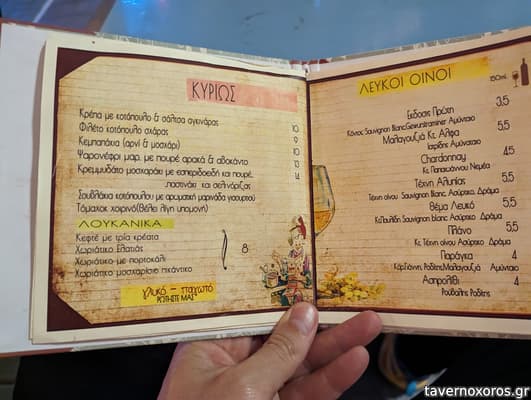 ΚΥΡΙΩΣ
Κρέπα με κοτόπουλο & σάλτσα αγκινάρας
Φιλέτο κοτόπουλο σχάρας 10
Κεμπαπάκια (αρνί & μοσχάρι) 9
Ψαρονέφρι μαρ. με πουρέ αρακά & αβοκάντο 10
Κρεμμυδάτο μοσχαράκι με εσπεριδοειδή και πουρέ 13
παστινάκι και σελινόριζας 14
Σουβλάκια κοτόπουλου με αρωματική μαρινάδα γιαουρτιού
Τόμαχοκ χοιρινό(θέλει λίγη υπομονή)
ΛΟΥΚΑΝΙΚΑ
Κεφτέ με τρία κρέατα
Χωριάτικο Ελατιάς 8
Χωριάτικο με πορτοκάλι
Χωριάτικο μοσχαρίσιο πικάντικο
γλυκό - παγωτό
ΡΩΤΗΣΤΕ ΜΑΣ
ΛΕΥΚΟΙ ΟΙΝΟΙ
150ml
Έκδοσις Πρώτη 3,5
Κόντος Sauvignon Blanc,Gewurztraminer Αμύνταιο
Μαλαγουζιά Κτ. Άλφα 5,5
Ιατρίδης Αμύνταιο
Chardonnay 4,5
Κτ. Παπαϊωάννου Νεμέα
Τέχνη Αλυπίας 5,5
Τέχνη οίνου Sauvignon Blanc, Ασύρτικο, Δράμα
Θέμα Λευκό 5,5
Κτ.Παυλίδη Sauvignon blanc Ασύρτικο Δράμα
Πλάνο 5,5
Κτ. Τέχνη οίνου Ασύρτικο Δράμα
Παράγκα 4
Κάρ.Γιάννη, Ροδίτης,Μαλαγουζιά Αμύνταιο
Ασπρολίθι 4
Ρούβαλης Ροδίτης
tavernoxoros.gr